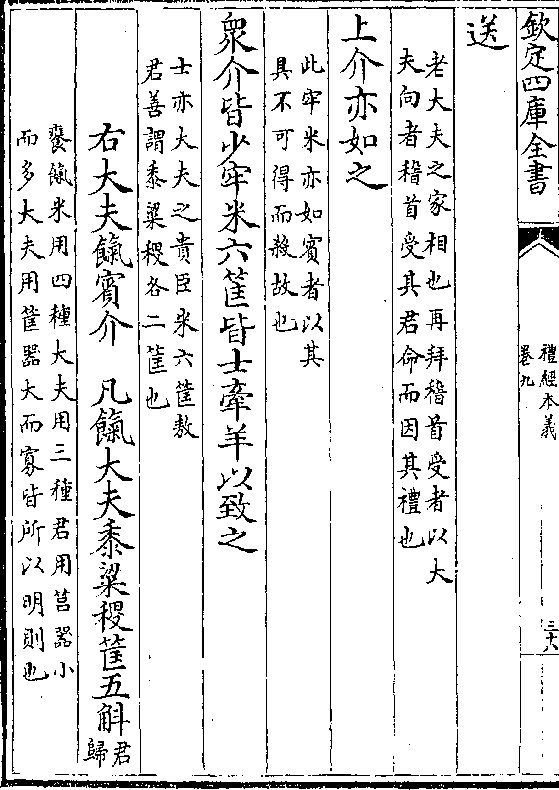 欽定四庫全書
禮經本義
卷九
三十八
送
老大夫之家相也再拜稽首受者以大
夫向者稽首受其君命而因其禮也
上介亦如之
此牢米亦如賓者以其
具不可得而殺故也
衆介皆少牢米六筐皆士牽羊以致之
士亦大夫之貴臣米六筐敖
君善謂黍粱稷各二筐也
右大夫餼賓介　凡餼大夫黍粱稷筐五斛
君
歸
饔餼米用四種大夫用三種君用筥器小
而多大夫用筐器大而寡皆所以明則也